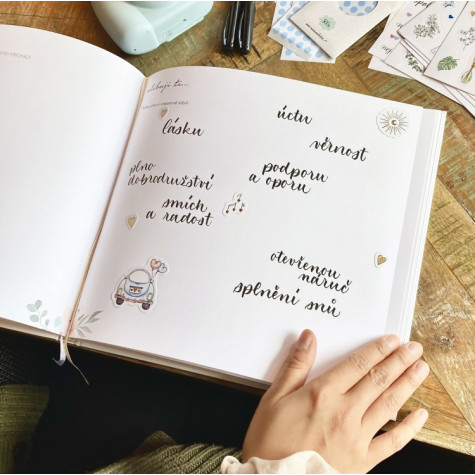 úctu
lásku
věrnost
plno
dobrodružství
podporu
a oporu
smích
a radost
otevřenou
náruč
splnění snů